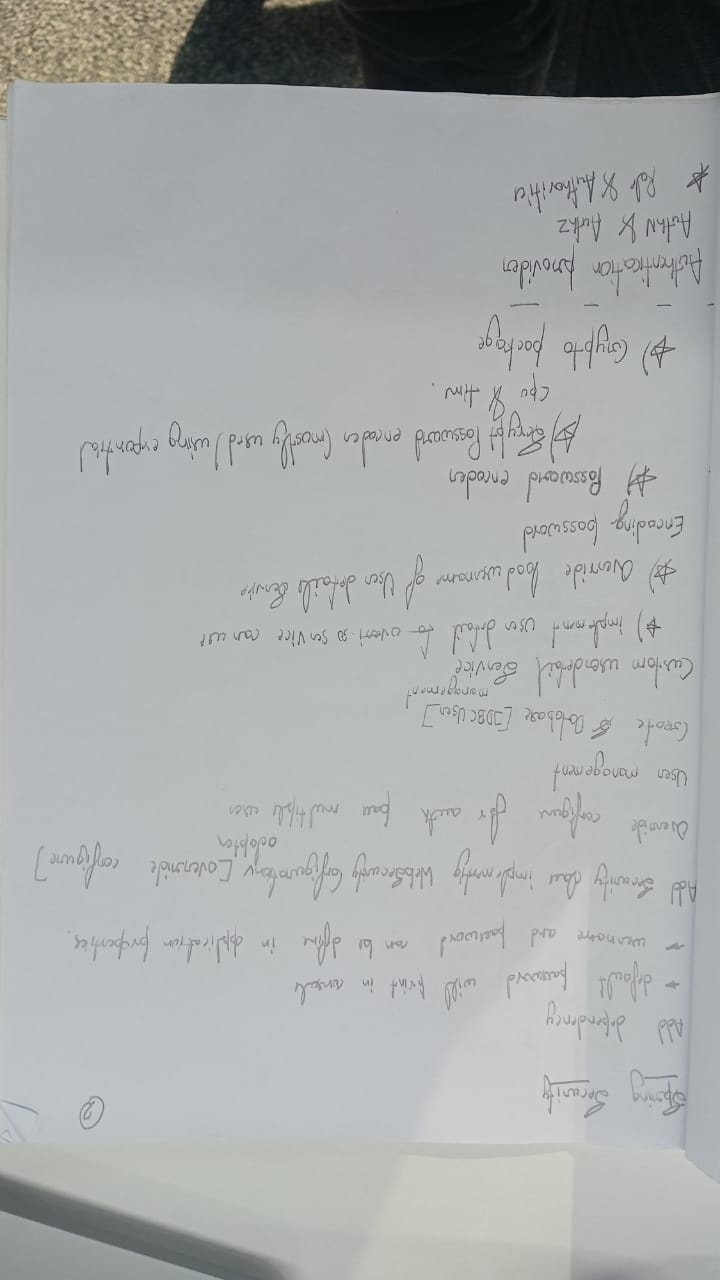 Spring Security
②
Add dependency
→ default password will print in console
→ username and password can be define in application properties.
Add Security class implementig WebSecurity Configuration [override configure]
adapter
override configure for auth pass multiple user
User management
Create Database [JDBC User]
management
Custom userdetail Service
☆) implement user detail to overri. so service can use
☆) override load username of User details Service
Encoding password
☆) Password encoder
☆) Bcrypt Password encoder (mostly used) using
cpu & tim.
☆) Crypto package
— — — —
Authentication provider
AuthN & AuthZ
☆ Role & Authorities